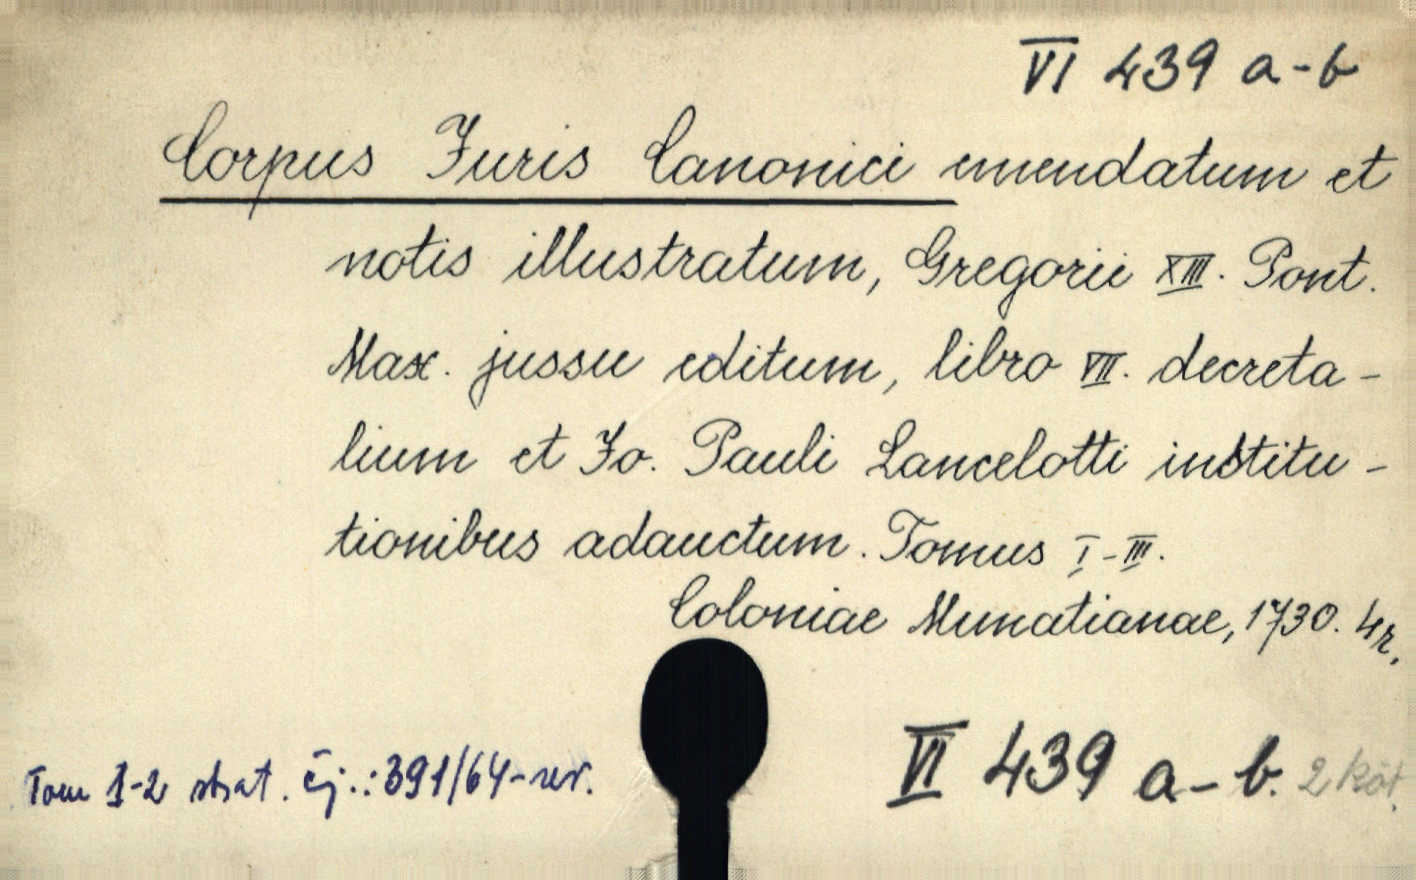 VI 439 a-b
Corpus Juris Canonici emendatum et
notis illustratum, Gregorii XIII. Pont.
Max. jussu editum, libro VII. decreta-
lium et Jo. Pauli Lancelotti institu-
tionibus adauctum. Tomus I-III.
Coloniae Munatianae, 1730. 4r.
Tom 1-2 strat. čj.: 391/64-rev.
VI 439 a-b. 2 köt.